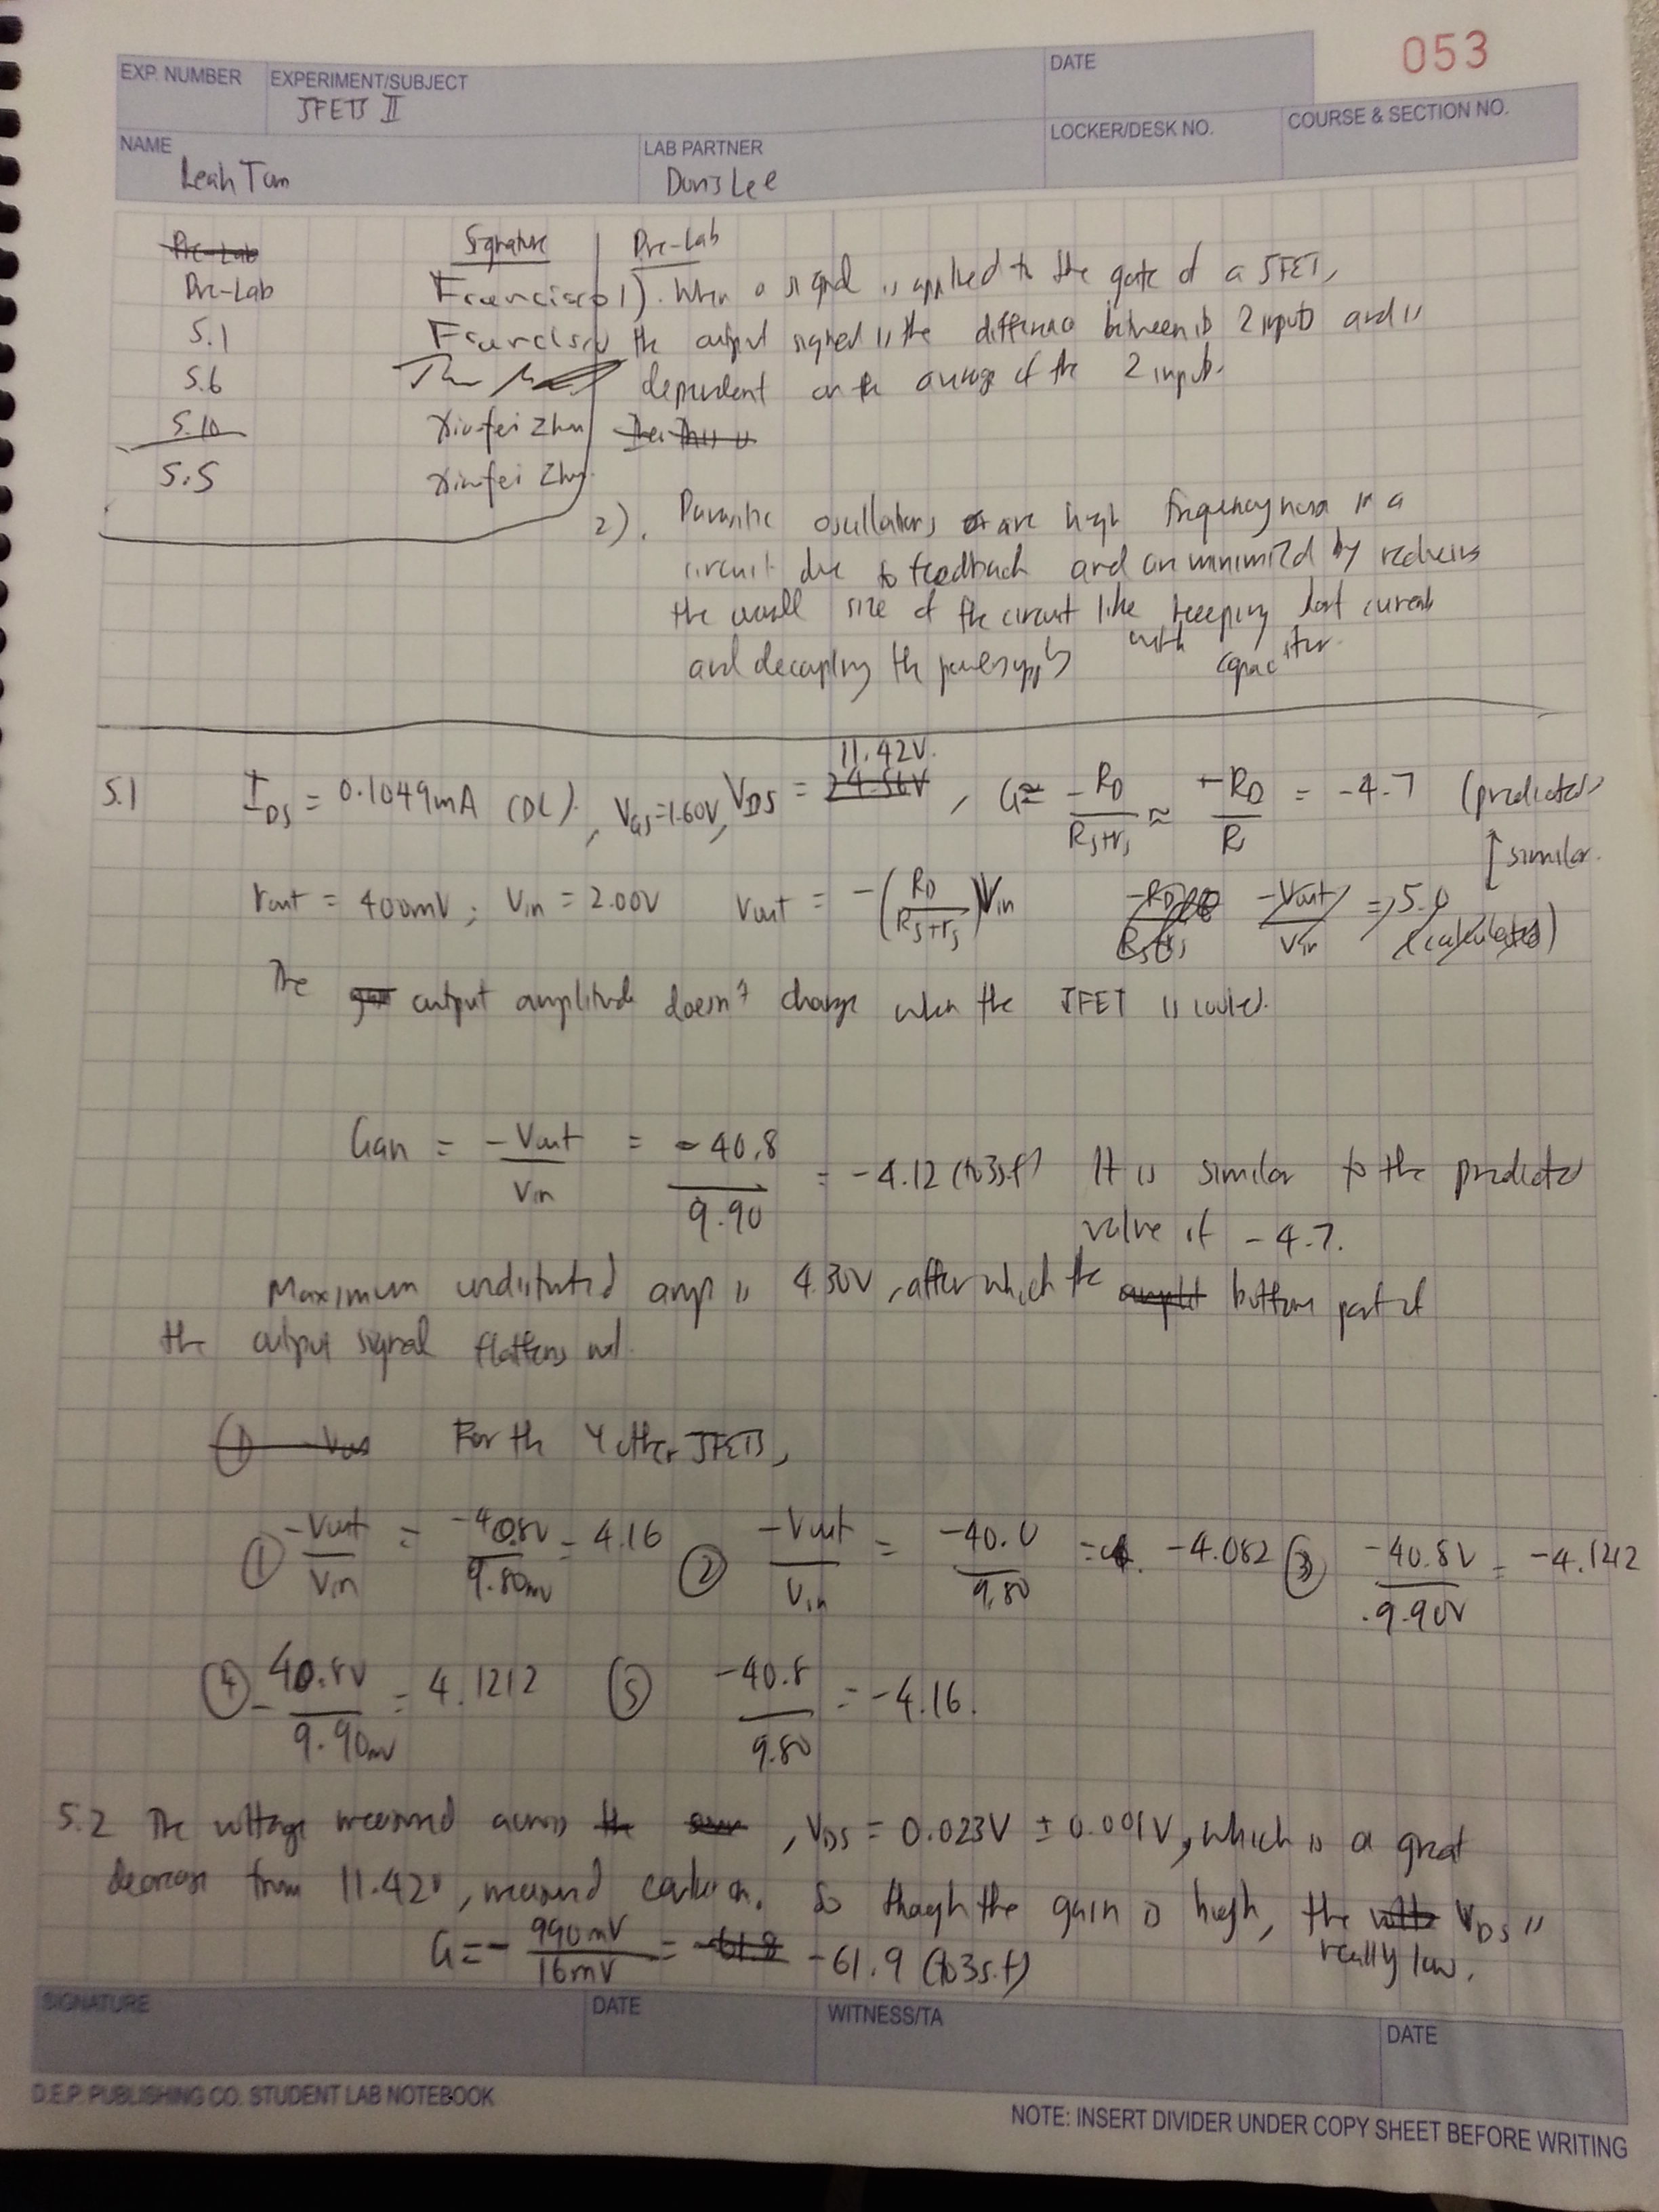 053
EXP. NUMBER EXPERIMENT/SUBJECT DATE
JFETS II
LOCKER/DESK NO. COURSE & SECTION NO.
NAME LAB PARTNER
Leah Tan Doris Lee
Pre-Lab Signature Pre-Lab
Pre-Lab Francisco 1). When a signal is applied to the gate of a JFET,
5.1 Francisco the output signal is the difference between its 2 inputs and is
5.6 dependent on the average of the 2 inputs.
5.10 Xiaofei Zhu
5.5 Xiaofei Zhu
2). Parasitic oscillations are high frequency noise in a
circuit due to feedback and can minimized by reducing
the overall size of the circuit like keeping current
and decoupling the power supply with capacitor.
11.42V.
5.1 IDS = 0.1049mA (DC), VGS=1.60V, VDS = 24.56V, G≈ -RD/(RS+rs) ≈ -RD/Rs = -4.7 (predicted)
↕ similar.
Vout = 400mV; Vin = 2.00V Vout = -(RD/(RS+rs))Vin -Vout/Vin = 5.0 (calculated)
The output amplitude doesn't change when the JFET is cooled.
Gain = -Vout/Vin = -40.8/9.90 = -4.12 (to 3s.f) It is similar to the predicted
value of -4.7.
Maximum undistorted amp is 4.30V, after which the bottom part of
the output signal flattens out.
For the 4 other JFETS,
① -Vout/Vin = -40.8V/9.80mV = 4.16 ② -Vout/Vin = -40.0/9.80 = -4.082 ③ -40.8V/9.90V = -4.1212
④ -40.8V/9.90mV = 4.1212 ⑤ -40.8/9.80 = -4.16.
5.2 The voltage measured across the , VDS = 0.023V ± 0.001V, which is a great
decrease from 11.42V, measured earlier on. So though the gain is high, the VDS is
really low.
G = - 990mV/16mV = -61.8 -61.9 (to 3s.f)
SIGNATURE DATE WITNESS/TA DATE
D.E.P. PUBLISHING CO. STUDENT LAB NOTEBOOK
NOTE: INSERT DIVIDER UNDER COPY SHEET BEFORE WRITING